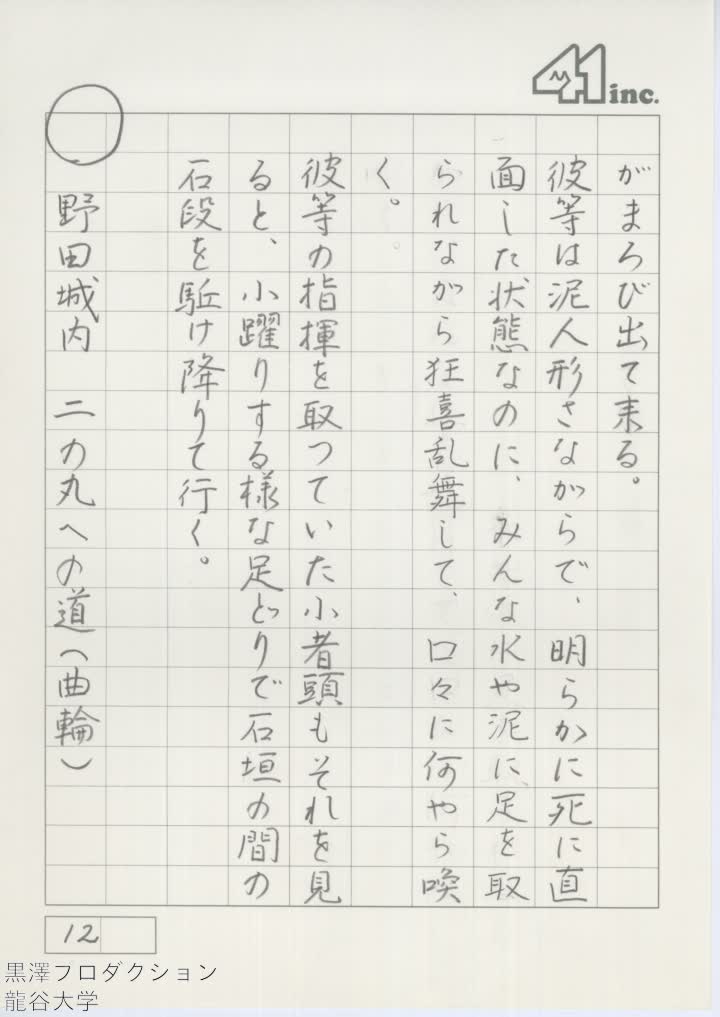 41 inc.
がまろび出て来る。
彼等は泥人形さながらで、明らかに死に直
面した状態なのに、みんな水や泥に足を取
られながら狂喜乱舞して、口々に何やら喚
く。
彼等の指揮を取っていた小者頭もそれを見
ると、小躍りする様な足どりで石垣の間の
石段を駈け降りて行く。
野田城内 二の丸への道（曲輪）
12
黒澤プロダクション
龍谷大学